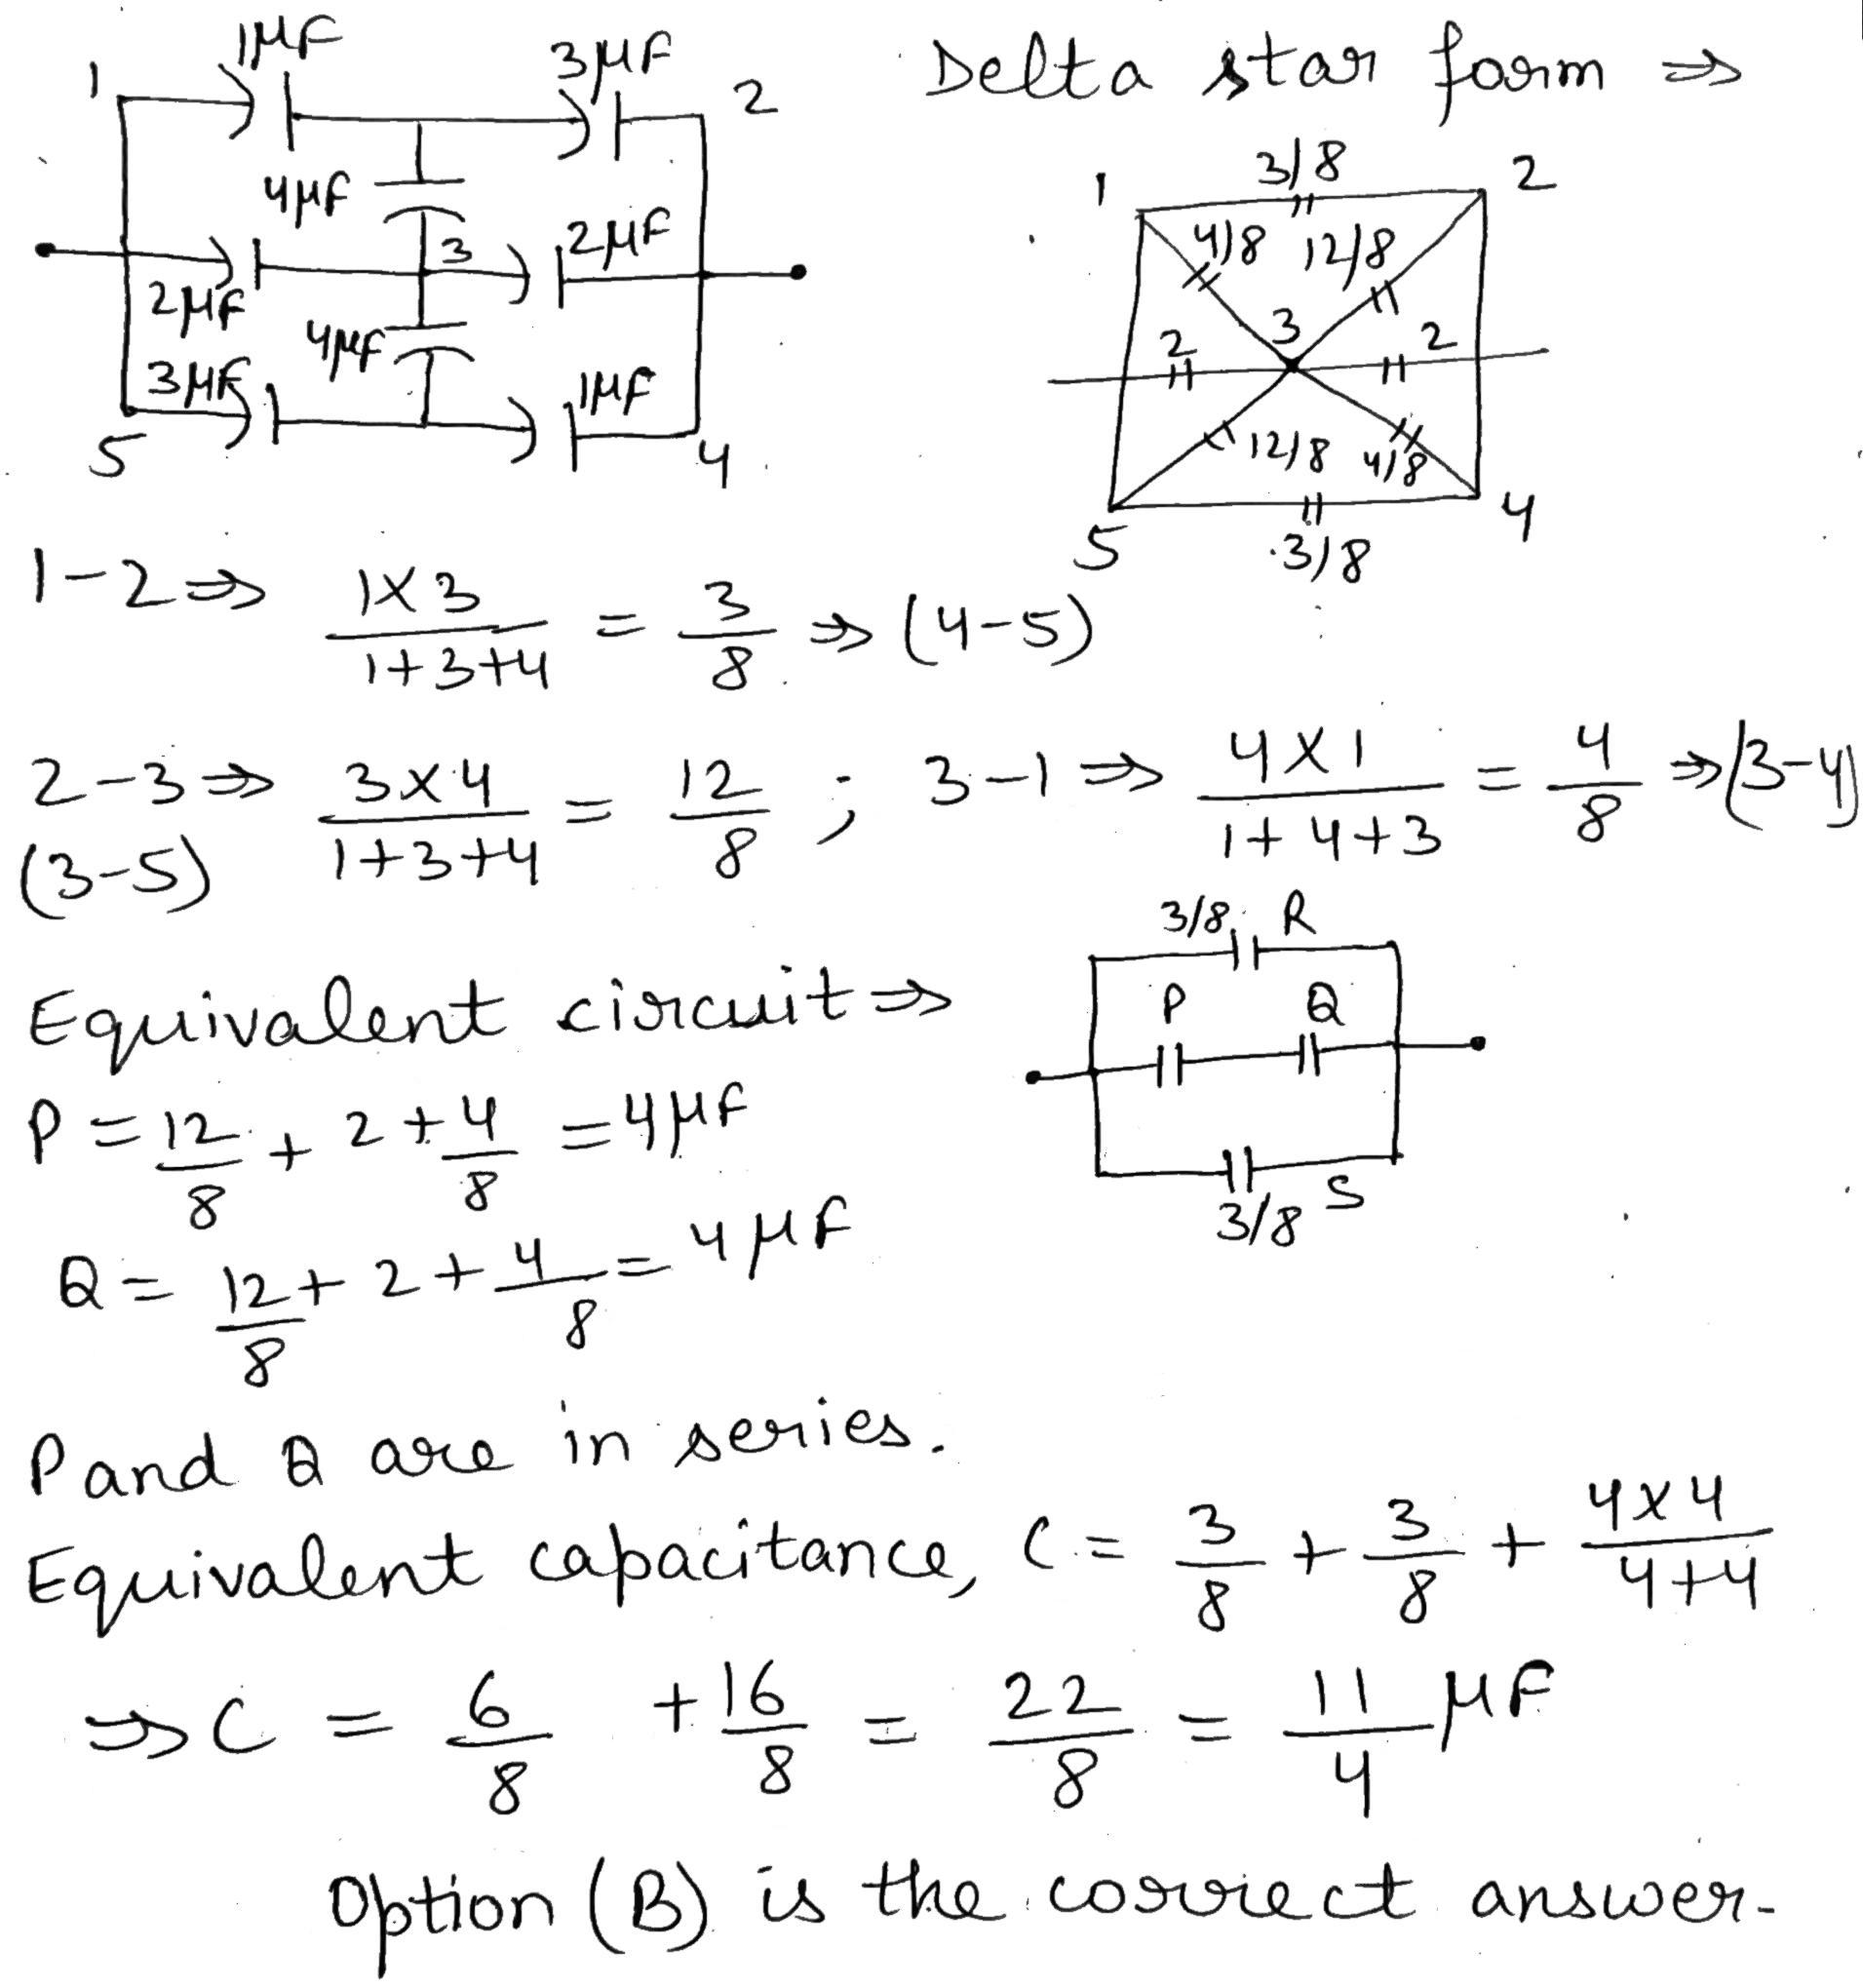 1 1μF 3μF 2 Delta star form ⇒
4μF 3 2μF
2μF 4μF
3μF 1μF
5 4
1 3/8 2
4/8 12/8
2 3 2
12/8 4/8
5 3/8 4
1-2 ⇒ 1×3/1+3+4 = 3/8 ⇒ (4-5)
2-3 ⇒ 3×4/1+3+4 = 12/8 ; 3-1 ⇒ 4×1/1+4+3 = 4/8 ⇒ (3-4)
(3-5)
3/8 R
Equivalent circuit ⇒ P Q
P = 12/8 + 2 + 4/8 = 4μF
3/8 S
Q = 12/8 + 2 + 4/8 = 4μF
P and Q are in series.
Equivalent capacitance, C = 3/8 + 3/8 + 4×4/4+4
⇒ C = 6/8 + 16/8 = 22/8 = 11/4 μF
Option (B) is the correct answer.